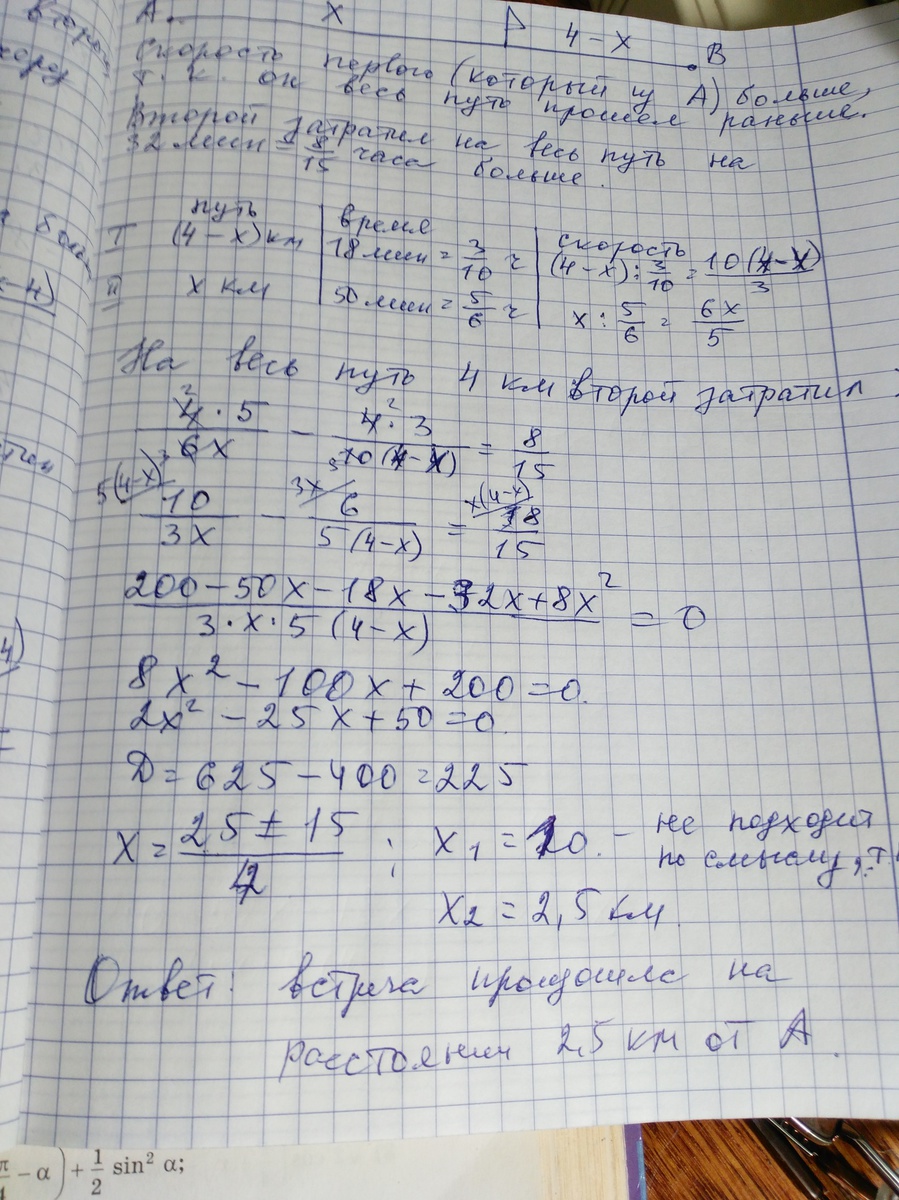 A. X 4-X .B
Скорость первого (который из A) больше,
т.к. он весь путь прошел раньше.
Второй затратил на весь путь на
32 мин = 8/15 часа больше.
путь время скорость
I (4-x) км 18 мин = 3/10 ч (4-x) : 3/10 = 10(4-x)/3
II x км 50 мин = 5/6 ч x : 5/6 = 6x/5
На весь путь 4 км второй затратил
4·5/6x - 4·3/10(4-x) = 8/15
10/3x - 6/5(4-x) = 8/15
(200-50x-18x-32x+8x²)/(3·x·5(4-x)) = 0
8x² - 100x + 200 = 0.
2x² - 25x + 50 = 0.
Д = 625 - 400 = 225
x = (25 ± 15)/4 ; x₁ = 10. - не подходит
по смыслу, т
x₂ = 2,5 км.
Ответ: встреча произошла на
расстоянии 2,5 км от A.
- α) + 1/2 sin² α;